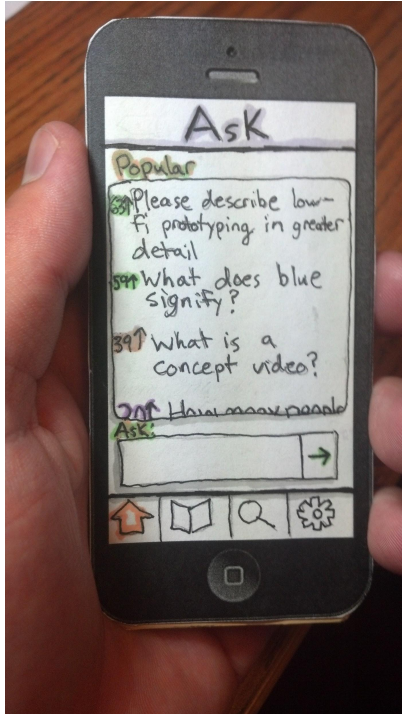 Ask
Popular
63↑ Please describe low-
fi prototyping in greater
detail
59↑ What does blue
signify?
39↑ What is a
concept video?
20↑ How many people
Ask:
→